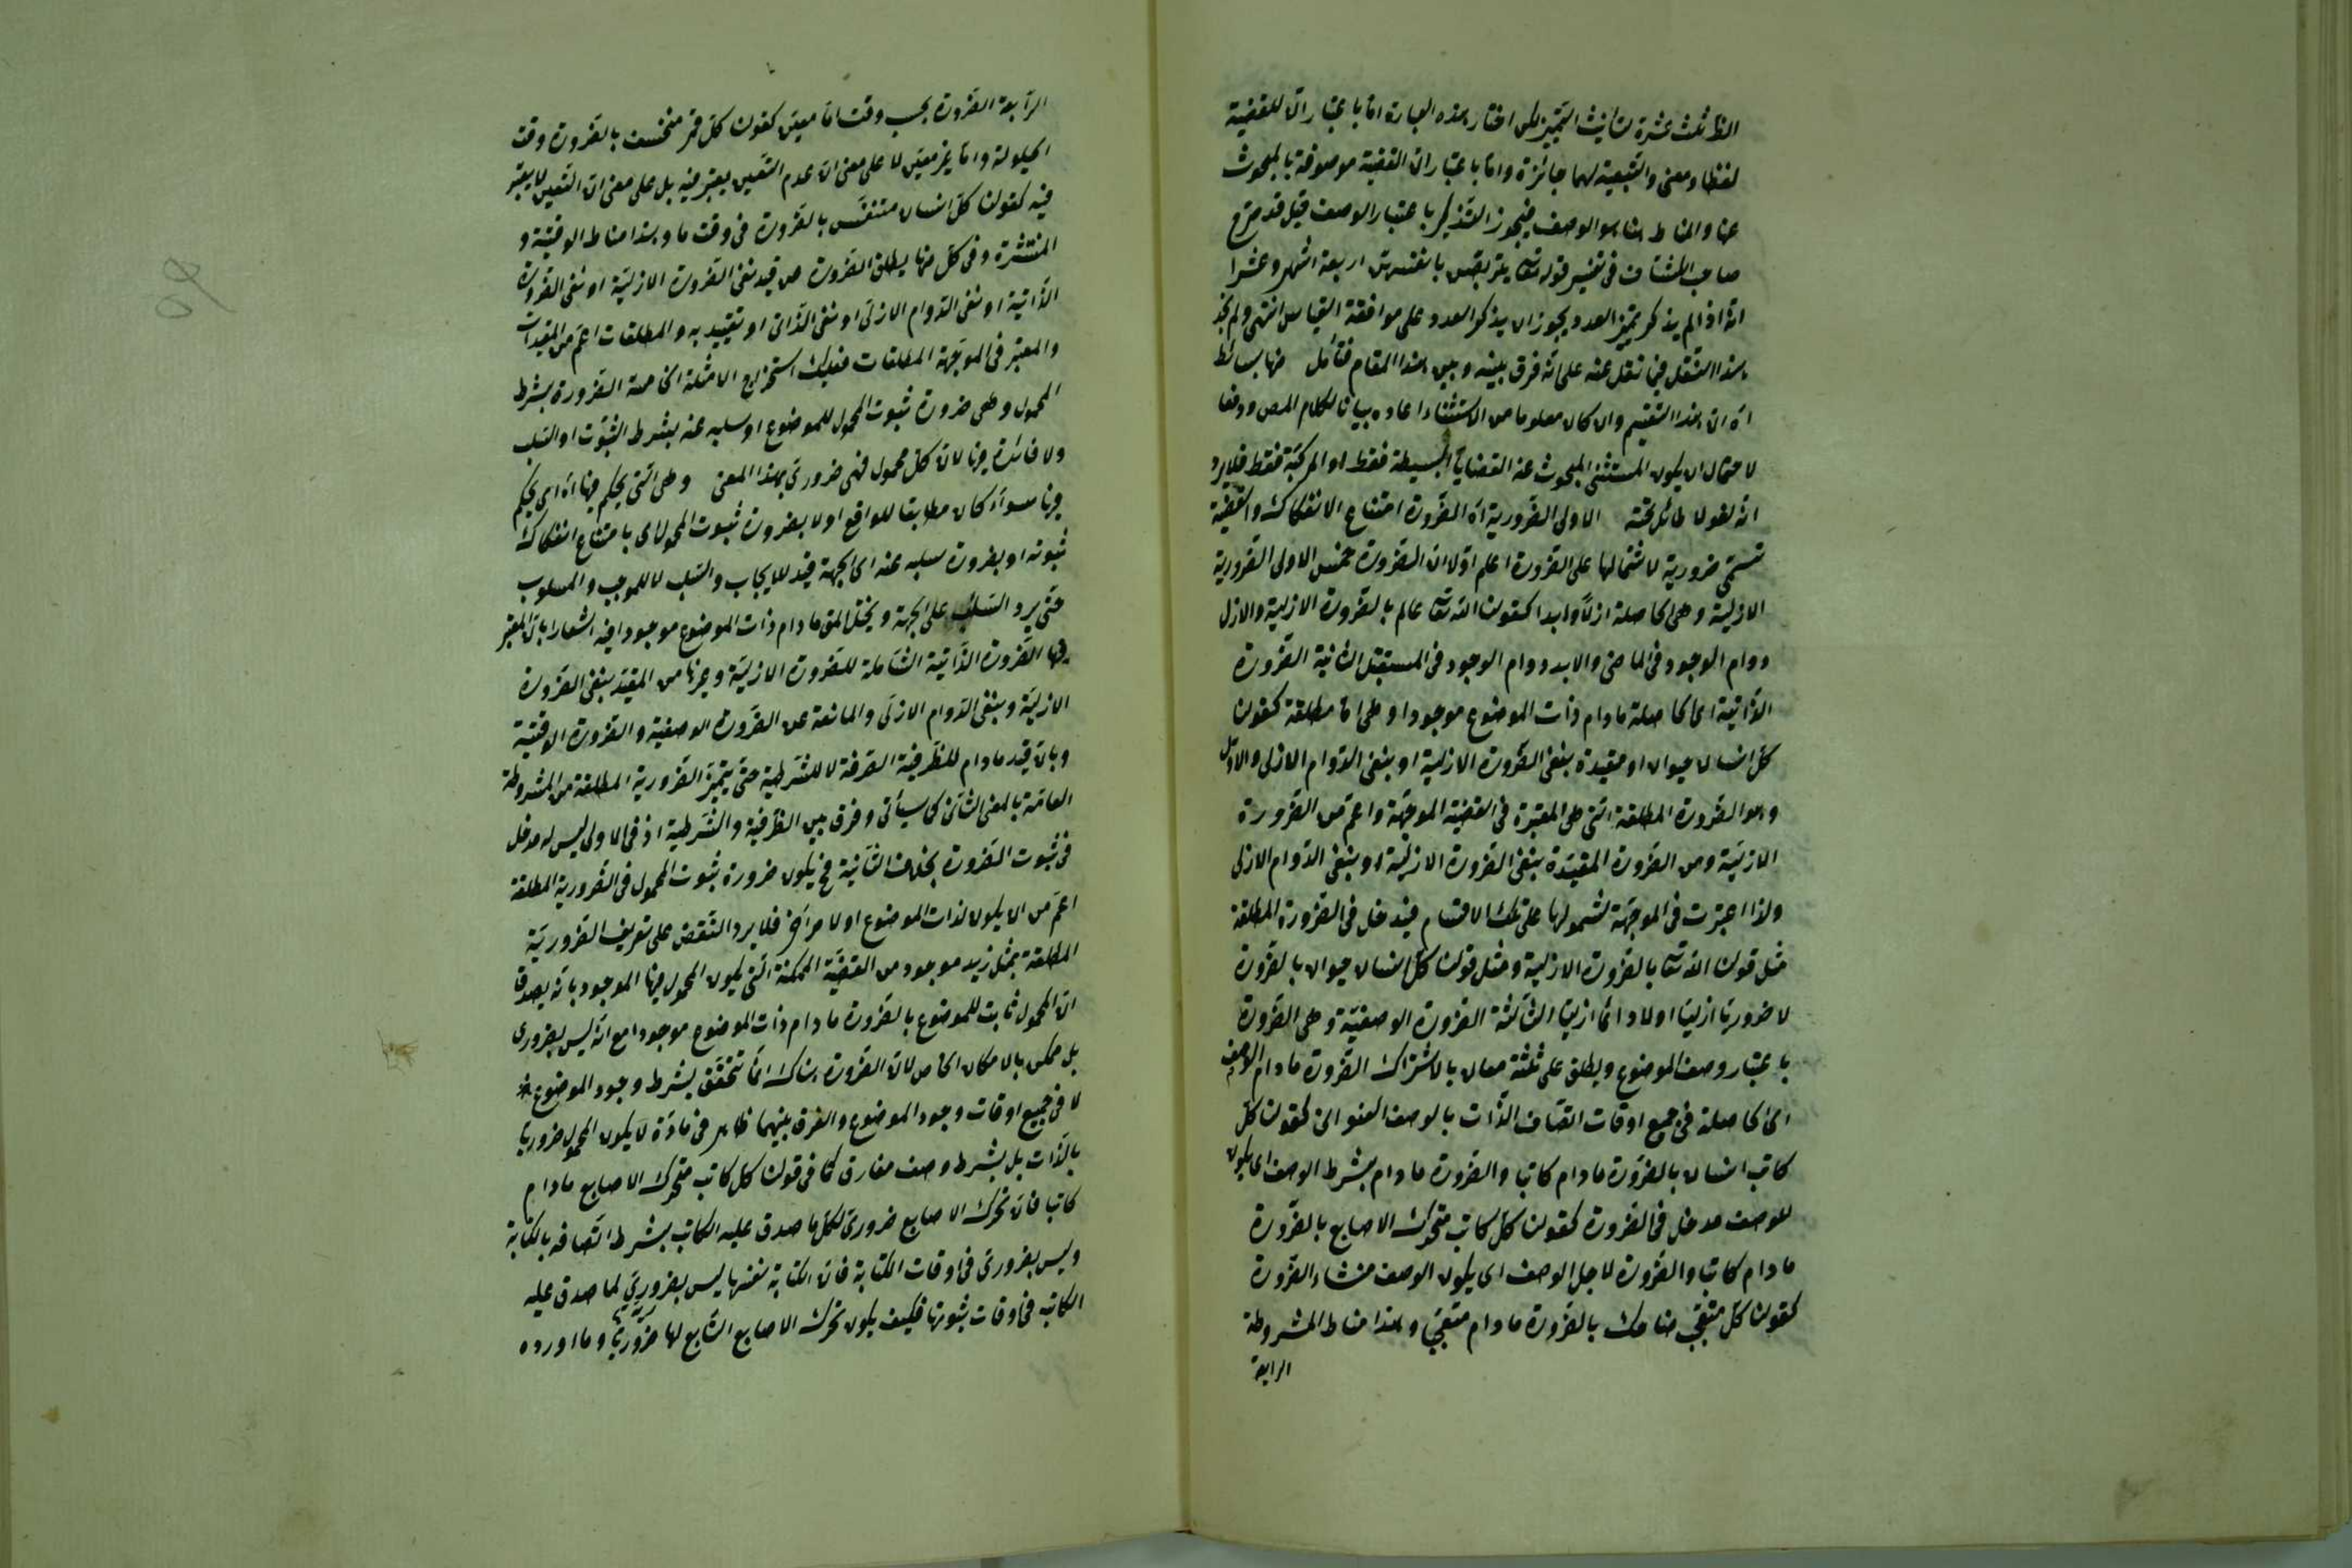 الظ ثلث عشرة لتأنيث التمييز لكن اختار هذه العبارة اما باعتبار ان للقضية
لفظا ومعنى والتبعية لهما جائزة واما باعتبار ان القضية موصوفة بالمبحوث
عنها والمناط هنا هو الوصف فيجوز التذكير باعتبار الوصف قيل قد صرح
صاحب الكشاف فى تفسير قوله تعا يتربصن بانفسهن اربعة اشهر وعشرا
انه اذا لم يذكر تمييز العدد يجوز ان يذكر العدد على موافقة القياس انتهى ولم نجد
هذا النقل فيما نقل عنه على انه فرق بينه وبين هذا المقام فتأمل منها بسائط
اه ان هذا التقسيم وان كان معلوما من الاستثناء اعاده بيانا لكلام المص ودفعا
لاحتمال ان يكون المستثنى المبحوث عنه القضايا البسيطة فقط او المركبة فقط فلا يرد
انه لغو لا طائل تحته الاولى الضرورية اه الضرورة امتناع الانفكاك والقضية
تسمى ضرورية لاشتمالها على الضرورة اعلم اولا ان الضرورة خمس الاولى الضرورية
الازلية وهى الحاصلة ازلا وابدا كقولنا الله تعا عالم بالضرورة الازلية والازل
دوام الوجود فى الماضى والابد دوام الوجود فى المستقبل الثانية الضرورة
الذاتية اى الحاصلة مادام ذات الموضوع موجودا وهى اما مطلقة كقولنا
كل انسان حيوان او مقيدة بنفى الضرورة الازلية او بنفى الدوام الازلى والاول
وهو الضرورة المطلقة التى هى المعتبرة فى القضية الموجهة واعم من الضرورة
الازلية ومن الضرورة المقيدة بنفى الضرورة الازلية او بنفى الدوام الازلى
ولذا اعتبرت فى الموجهة لشمولها على تلك الاقسام فيدخل فى الضرورة المطلقة
مثل قولنا الله تعا بالضرورة الازلية ومثل قولنا كل انسان حيوان بالضرورة
لا ضروريا ازليا او لا دائما ازليا الثالثة الضرورة الوصفية وهى الضرورة
باعتبار وصف الموضوع ويطلق على ثلثة معان بالاشتراك الضرورة مادام الوصف
اى الحاصلة فى جميع اوقات اتصاف الذات بالوصف العنوانى كقولنا كل
كاتب انسان بالضرورة مادام كاتبا والضرورة مادام بشرط الوصف اى يكون
للوصف مدخل فى الضرورة كقولنا كل كاتب متحرك الاصابع بالضرورة
مادام كاتبا والضرورة لاجل الوصف اى يكون الوصف منشاء الضرورة
كقولنا كل متعجب ضاحك بالضرورة مادام متعجبا وهذا مناط المشروطة
الرابعة
الرابعة الضرورة بحسب وقت اما معين كقولنا كل قمر منخسف بالضرورة وقت
الحيلولة واما غير معين لا على معنى ان عدم التعيين يعتبر فيه بل على معنى ان التعيين لا يعتبر
فيه كقولنا كل انسان متنفس بالضرورة فى وقت ما وهذا مناط الوقتية و
المنتشرة وفى كل منها يطلق الضرورة عن قيد نفى الضرورة الازلية او نفى الضرورة
الذاتية او نفى الدوام الازلى او نفى الذاتى او تقييد به والمطلقات اعم من المقيدات
والمعتبر فى الموجهة المطلقات فعليك استخراج الامثلة الخامسة الضرورة بشرط
المحمول وهى ضرورة ثبوت المحمول للموضوع او سلبه عنه بشرط الثبوت او السلب
ولا فائدة فيها لان كل محمول فهى ضرورى بهذا المعنى وهى التى يحكم فيها اه اى يحكم
فيها سواء كان مطابقا للواقع او لا بضرورة ثبوت المحمول اى بامتناع انفكاك
ثبوته او بضرورة سلبه عنه اى الجهة قيد للايجاب والسلب لا للموجب والمسلوب
حتى يرد السلب على الجهة ويختل المق مادام ذات الموضوع موجودا فيه اشعار بان المعتبر
فيها الضرورة الذاتية الشاملة للضرورة الازلية وغيرها من المقيد بنفى الضرورة
الازلية وبنفى الدوام الازلى والمانعة عن الضرورة الوصفية والضرورة الوقتية
وبان قيد مادام للظرفية الصرفة لا للشرطية حتى يتميز الضرورية المطلقة من المشروطة
العامة بالمعنى الثانى كما سيأتى وفرق بين الظرفية والشرطية اذ فى الاولى ليس له مدخل
فى ثبوت الضرورة بخلاف الثانية فح يكون ضرورة ثبوت المحمول فى الضرورية المطلقة
اعم من ان يكون لذات الموضوع او لامر آخر فلا يرد النقض على تعريف الضرورية
المطلقة بمثل زيد موجود من القضية الممكنة التى يكون المحمول فيها الموجود بانه يصدق
ان المحمول ثابت للموضوع بالضرورة مادام ذات الموضوع موجودا مع انه ليس بضرورى
بل ممكن بالامكان الخاص لان الضرورة هناك انما تتحقق بشرط وجود الموضوع
لا فى جميع اوقات وجود الموضوع والفرق بينهما ظاهر فى مادة لا يكون المحمول ضروريا
بالذات بل بشرط وصف مفارق كما فى قولنا كل كاتب متحرك الاصابع مادام
كاتبا فان تحرك الاصابع ضرورى لكل ما صدق عليه الكاتب بشرط اتصافه بالكتابة
وليس بضرورى فى اوقات الكتابة فان الكتابة نفسها ليس بضرورى لما صدق عليه
الكاتب فى اوقات ثبوتها فكيف يكون تحرك الاصابع التابع لها ضروريا وما اورده